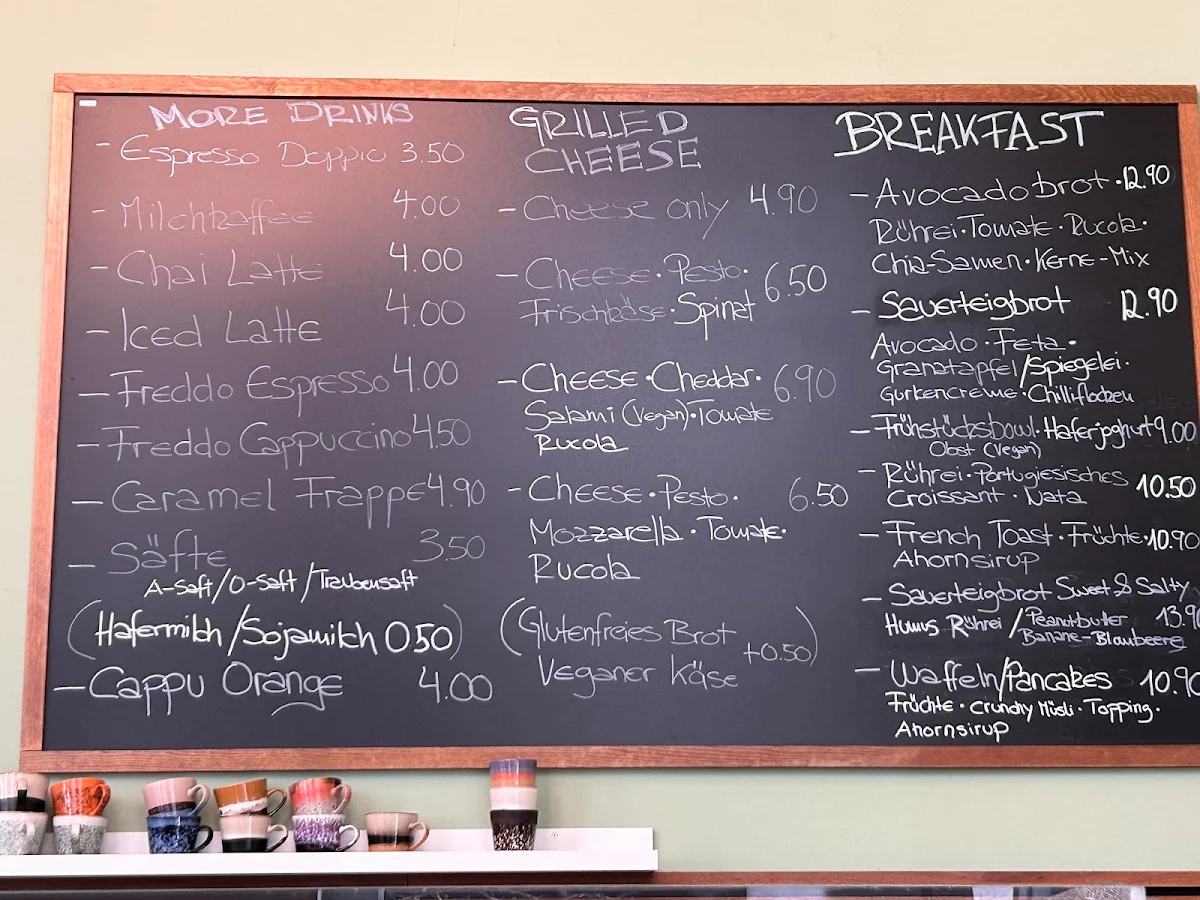 MORE DRINKS
- Espresso Doppio 3.50
- Milchkaffee 4.00
- Chai Latte 4.00
- Iced Latte 4.00
- Freddo Espresso 4.00
- Freddo Cappuccino 4.50
- Caramel Frappe 4.90
- Säfte 3.50
A-Saft/O-Saft/Traubensaft
(Hafermilch/Sojamilch 0.50)
- Cappu Orange 4.00
GRILLED
CHEESE
- Cheese only 4.90
- Cheese · Pesto · 6.50
Frischkäse · Spinat
- Cheese · Cheddar · 6.90
Salami (vegan) · Tomate
Rucola
- Cheese · Pesto · 6.50
Mozzarella · Tomate ·
Rucola
(Glutenfreies Brot
Veganer Käse +0.50)
BREAKFAST
- Avocadobrot · 12.90
Rührei · Tomate · Rucola ·
Chia-Samen · Kerne-Mix
- Sauerteigbrot 12.90
Avocado · Feta ·
Granatapfel/Spiegelei ·
Gurkencreme · Chilliflocken
- Frühstücksbowl · Haferjoghurt 9.00
Obst (vegan)
- Rührei · Portugiesisches 10.50
Croissant · Nata
- French Toast · Früchte · 10.90
Ahornsirup
- Sauerteigbrot Sweet & Salty
Humus Rührei / Peanutbutter 13.90
Banane-Blaubeere
- Waffeln/Pancakes 10.90
Früchte · Crunchy Müsli · Topping ·
Ahornsirup